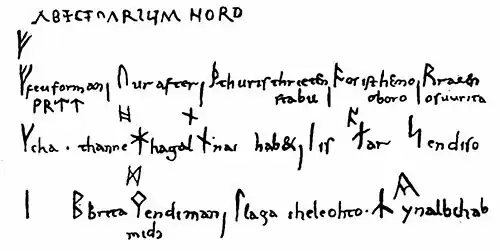 ABECEDARIUM NORD
ᚠ
ᚠ feuforman, ᚢ ur after, ᚦ thuris thriten, ᚬ os is themo, ᚱ rat en
stabu oboro os uurita
ᚼ ᚾ
ᚴ cha. thanne ᚼ hagal ᚾ nau hab&, ᛁ is ᛅ ar ᛋ endi so
ᛁ ᛒ brica endi man, ᛚ laga the leohto. ᛣ yn al bihab
midi